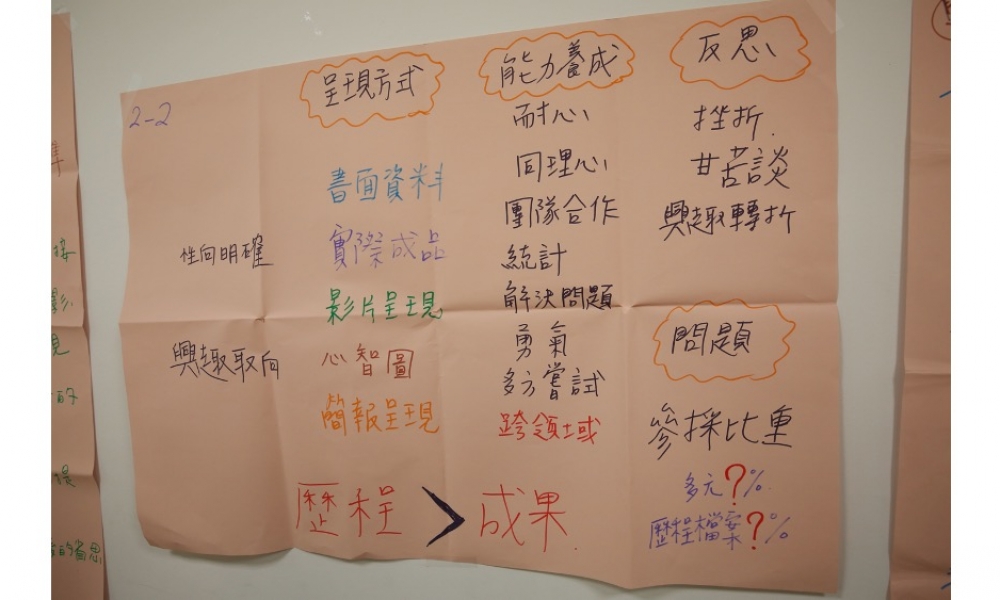 2-2
性向明確
興趣取向
呈現方式
書面資料
實際成品
影片呈現
心智圖
簡報呈現
能力養成
耐心
同理心
團隊合作
統計
解決問題
勇氣
多方嘗試
跨領域
反思
挫折.
甘苦談
興趣轉折
問題
參採比重
多元?%
歷程檔案?%
歷程 > 成果
接
影
見
的